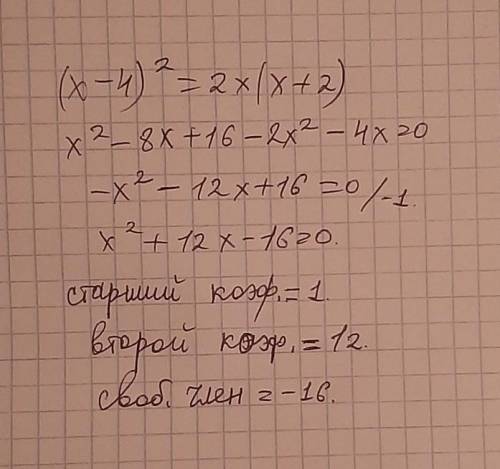 (x-4)² = 2x(x+2)
x² - 8x + 16 - 2x² - 4x = 0
-x² - 12x + 16 = 0 /-1.
x² + 12x - 16 = 0.
старший коэф. = 1.
второй коэф. = 12.
своб. член = -16.